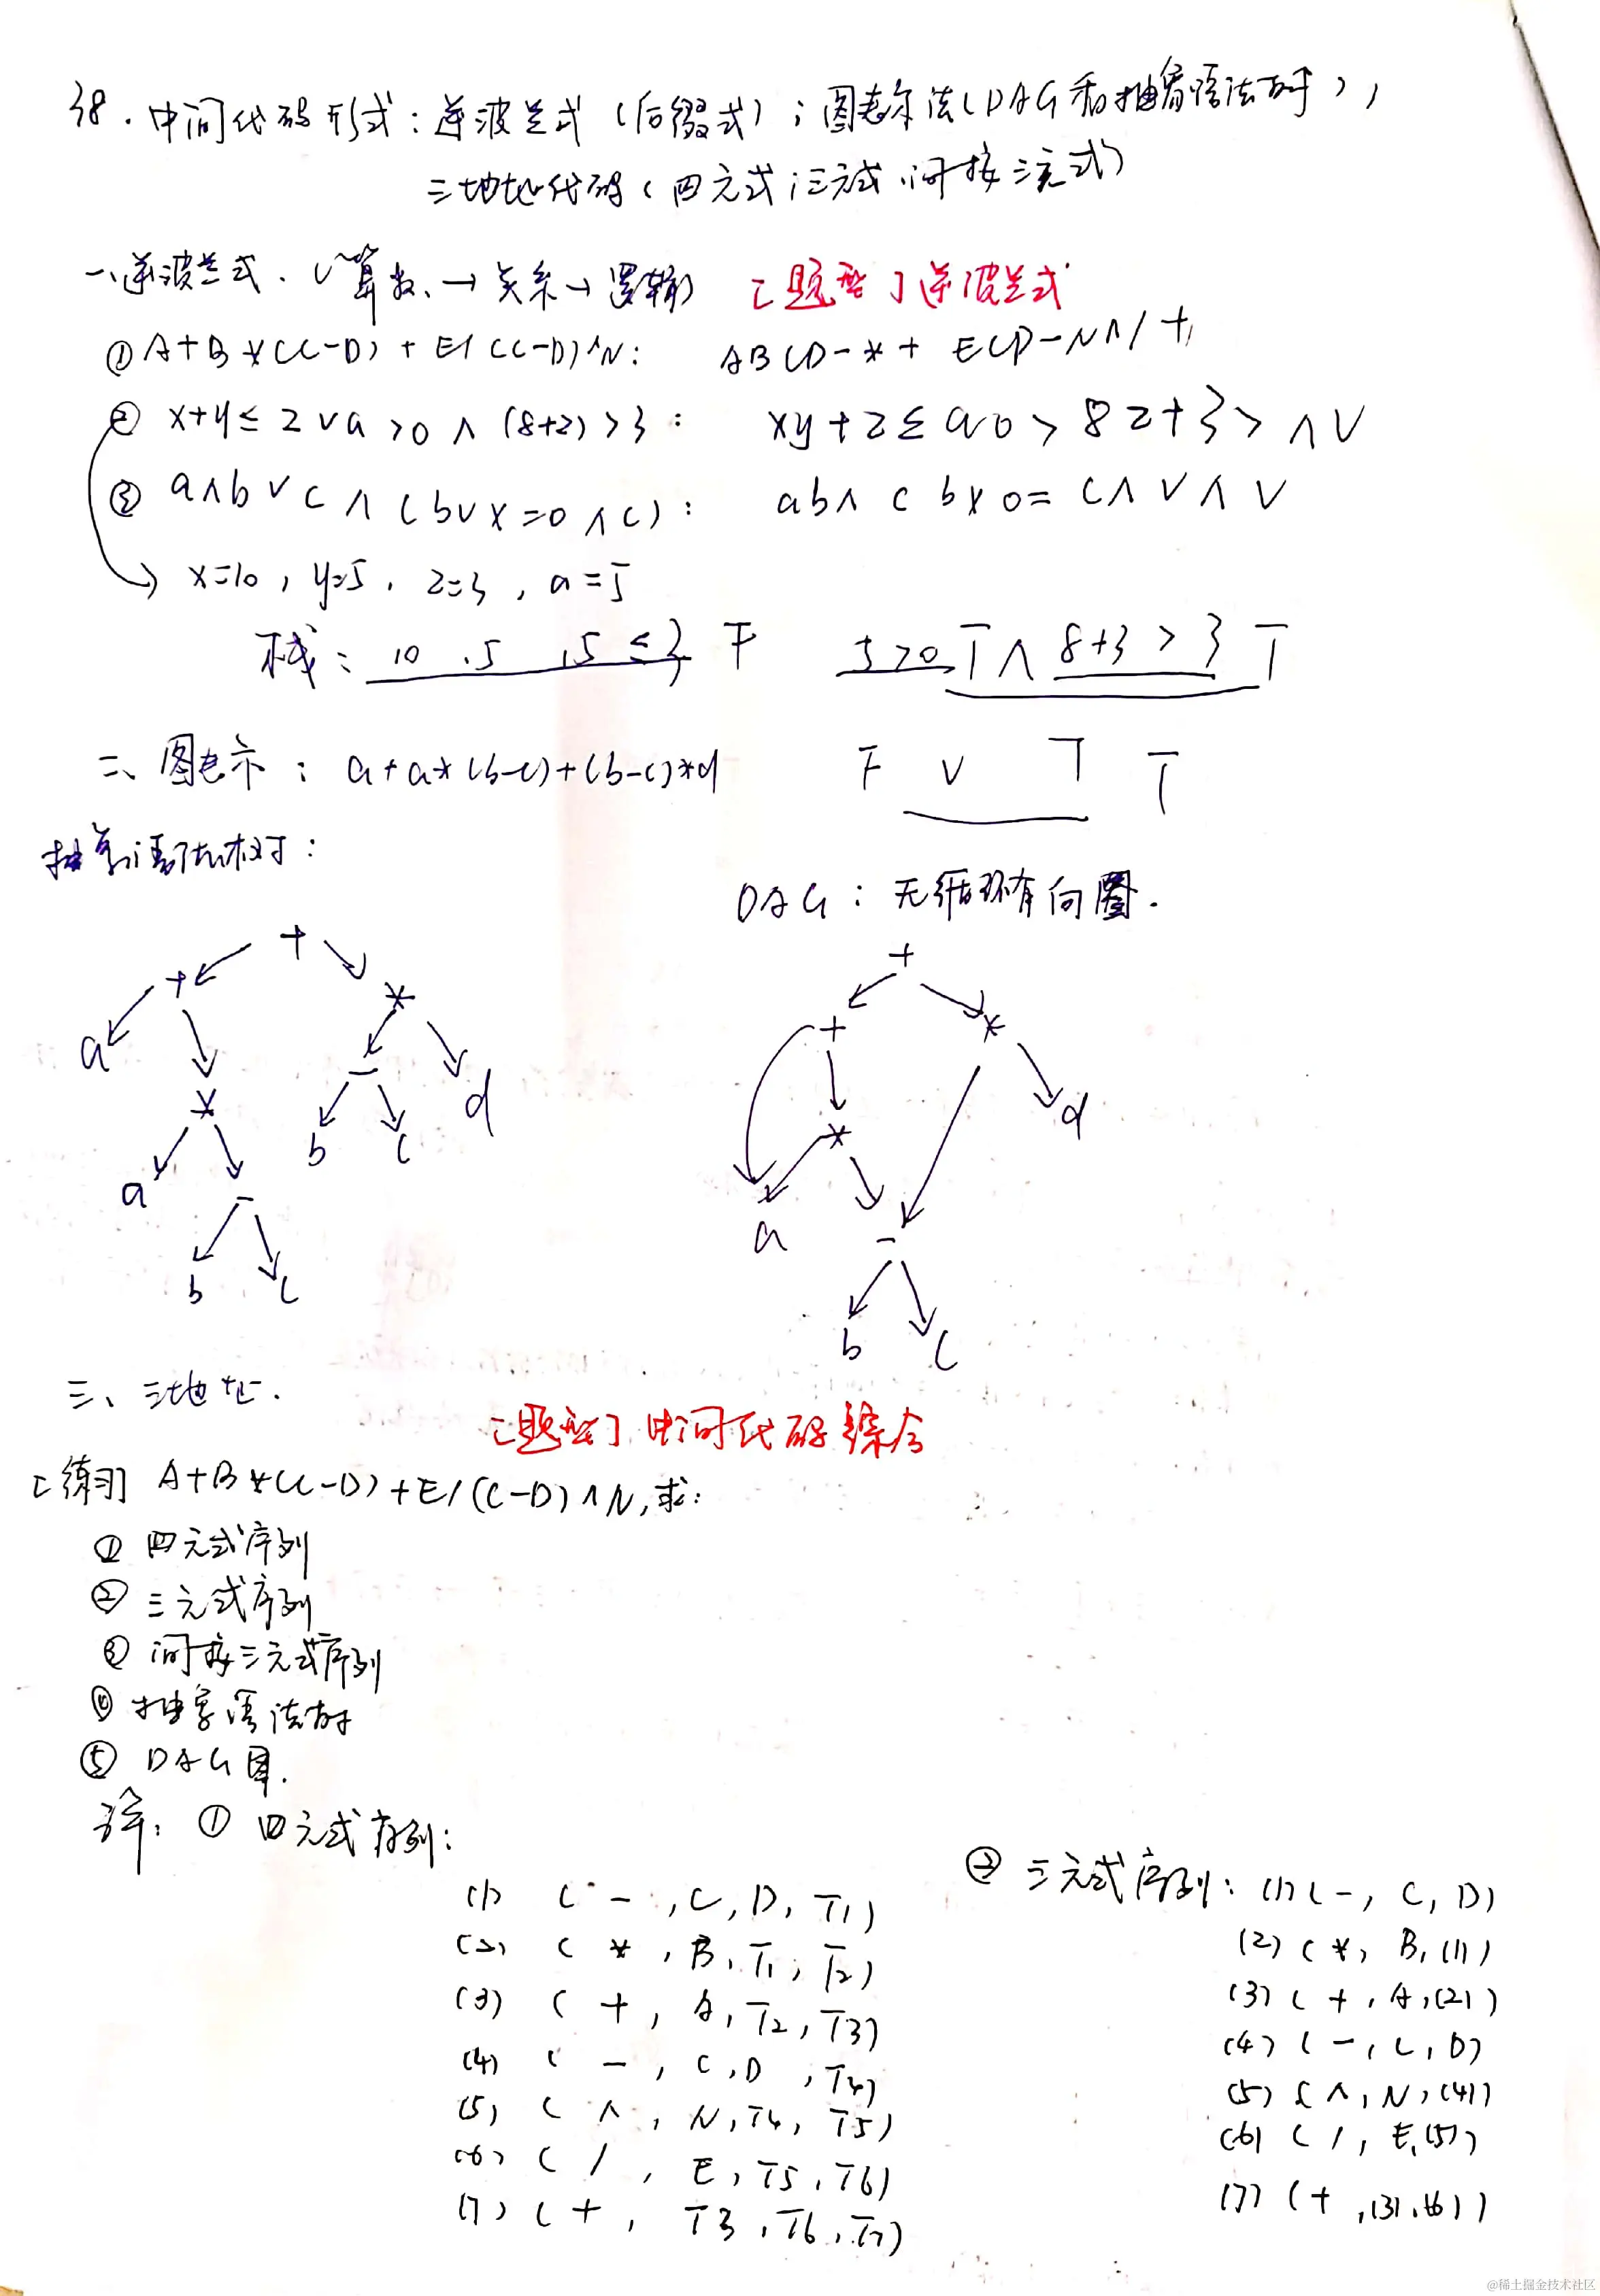 38. 中间代码形式：逆波兰式（后缀式）；图表示法（DAG和抽象语法树），
三地址代码（四元式；三元式、间接三元式）
一、逆波兰式. （算数、→关系→逻辑） [题型]逆波兰式
① A+B*(C-D)+E/(C-D)^N: ABCD-*+ECD-N^/+
② x+y≤z∨a>0∧(8+z)>3: xy+z≤a0>8z+3>∧∨
③ a∧b∨c∧(b∨x=0∧c): ab∧cbx0=c∧∨∧∨
→ x=10, y=5. z=3, a=5
栈: 10 .5 15≤3 F 5>0 T∧8+3>3 T
F ∨ T T
二、图表示: a+a*(b-c)+(b-c)*d
抽象语法树:
DAG: 无循环有向图.
+
+ *
a * - d
b c
a -
b c
+
+ *
* d
a -
b c
三、三地址.
[题型]中间代码综合
[练习] A+B*(C-D)+E/(C-D)^N,求:
① 四元式序列
② 三元式序列
③ 间接三元式序列
④ 抽象语法树
⑤ DAG图.
解: ① 四元式序列:
(1) (-,C,D,T1)
(2) (*,B,T1,T2)
(3) (+,A,T2,T3)
(4) (-,C,D,T4)
(5) (^,N,T4,T5)
(6) (/,E,T5,T6)
(7) (+,T3,T6,T7)
② 三元式序列: (1) (-,C,D)
(2) (*,B,(1))
(3) (+,A,(2))
(4) (-,C,D)
(5) (^,N,(4))
(6) (/,E,(5))
(7) (+,(3),(6))
@稀土掘金技术社区